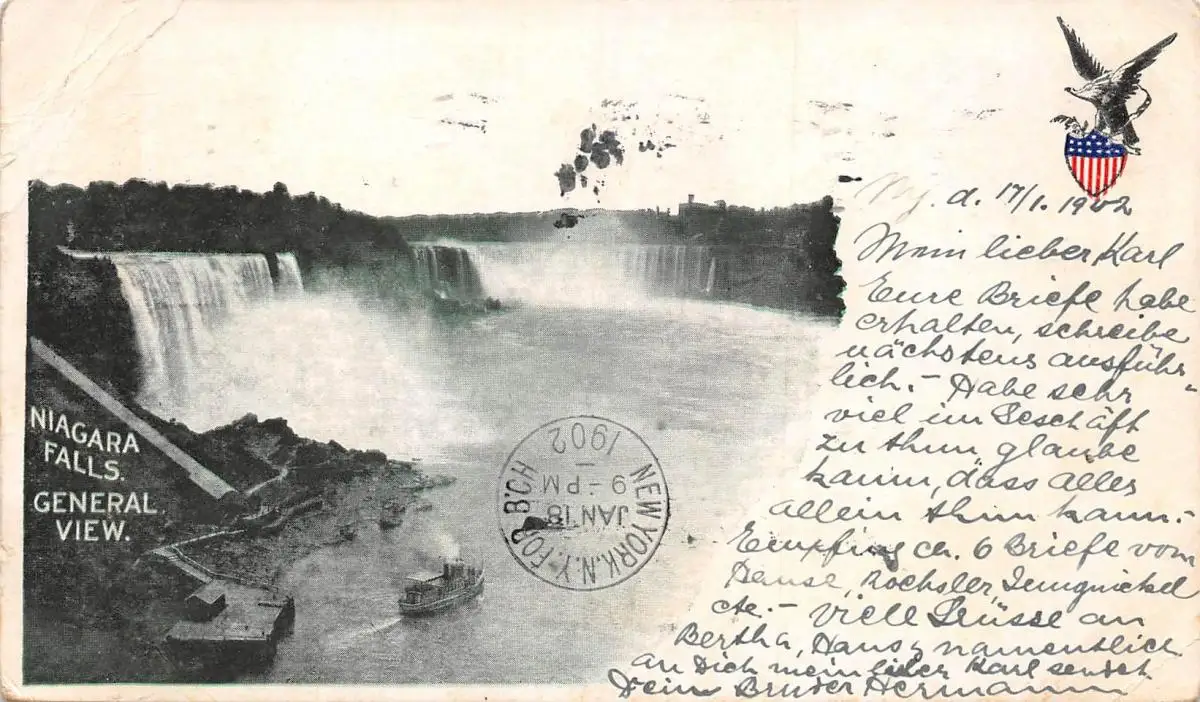 NIAGARA
FALLS.
GENERAL
VIEW.
NEW YORK.N.Y. FOR B'CH
JAN 18
9 - PM
1902
d. 17/1. 1902
Mein lieber Karl
Eure Briefe habe
erhalten, schreibe
nächstens ausführ-
lich. - Habe sehr
viel im Geschäft
zu thun, glaube
kaum, dass alles
allein thun kann. -
Empfing ca. 6 Briefe vom
Hause,
etc. - Viele Grüsse an
Bertha, Hans & namentlich
an Dich mein lieber Karl sendet
Dein Bruder Hermann